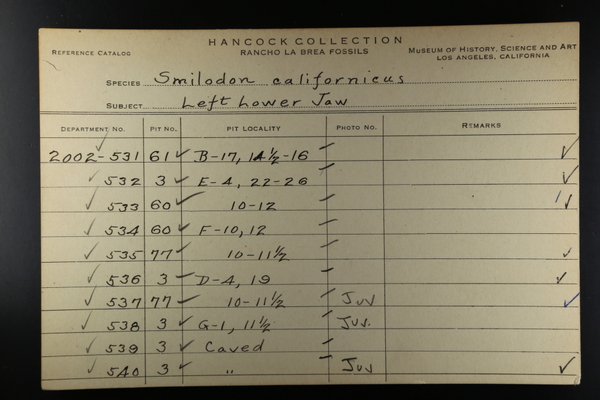 HANCOCK COLLECTION
REFERENCE CATALOG RANCHO LA BREA FOSSILS MUSEUM OF HISTORY, SCIENCE AND ART
LOS ANGELES, CALIFORNIA
SPECIES Smilodon californicus
SUBJECT Left Lower Jaw
DEPARTMENT NO. PIT NO. PIT LOCALITY PHOTO NO. REMARKS
2002-531 61 B-17, 14½-16
532 3 E-4, 22-26
533 60 10-12
534 60 F-10, 12
535 77 10-11½
536 3 D-4, 19
537 77 10-11½ Juv
538 3 G-1, 11½ Juv.
539 3 Caved
540 3 " Juv